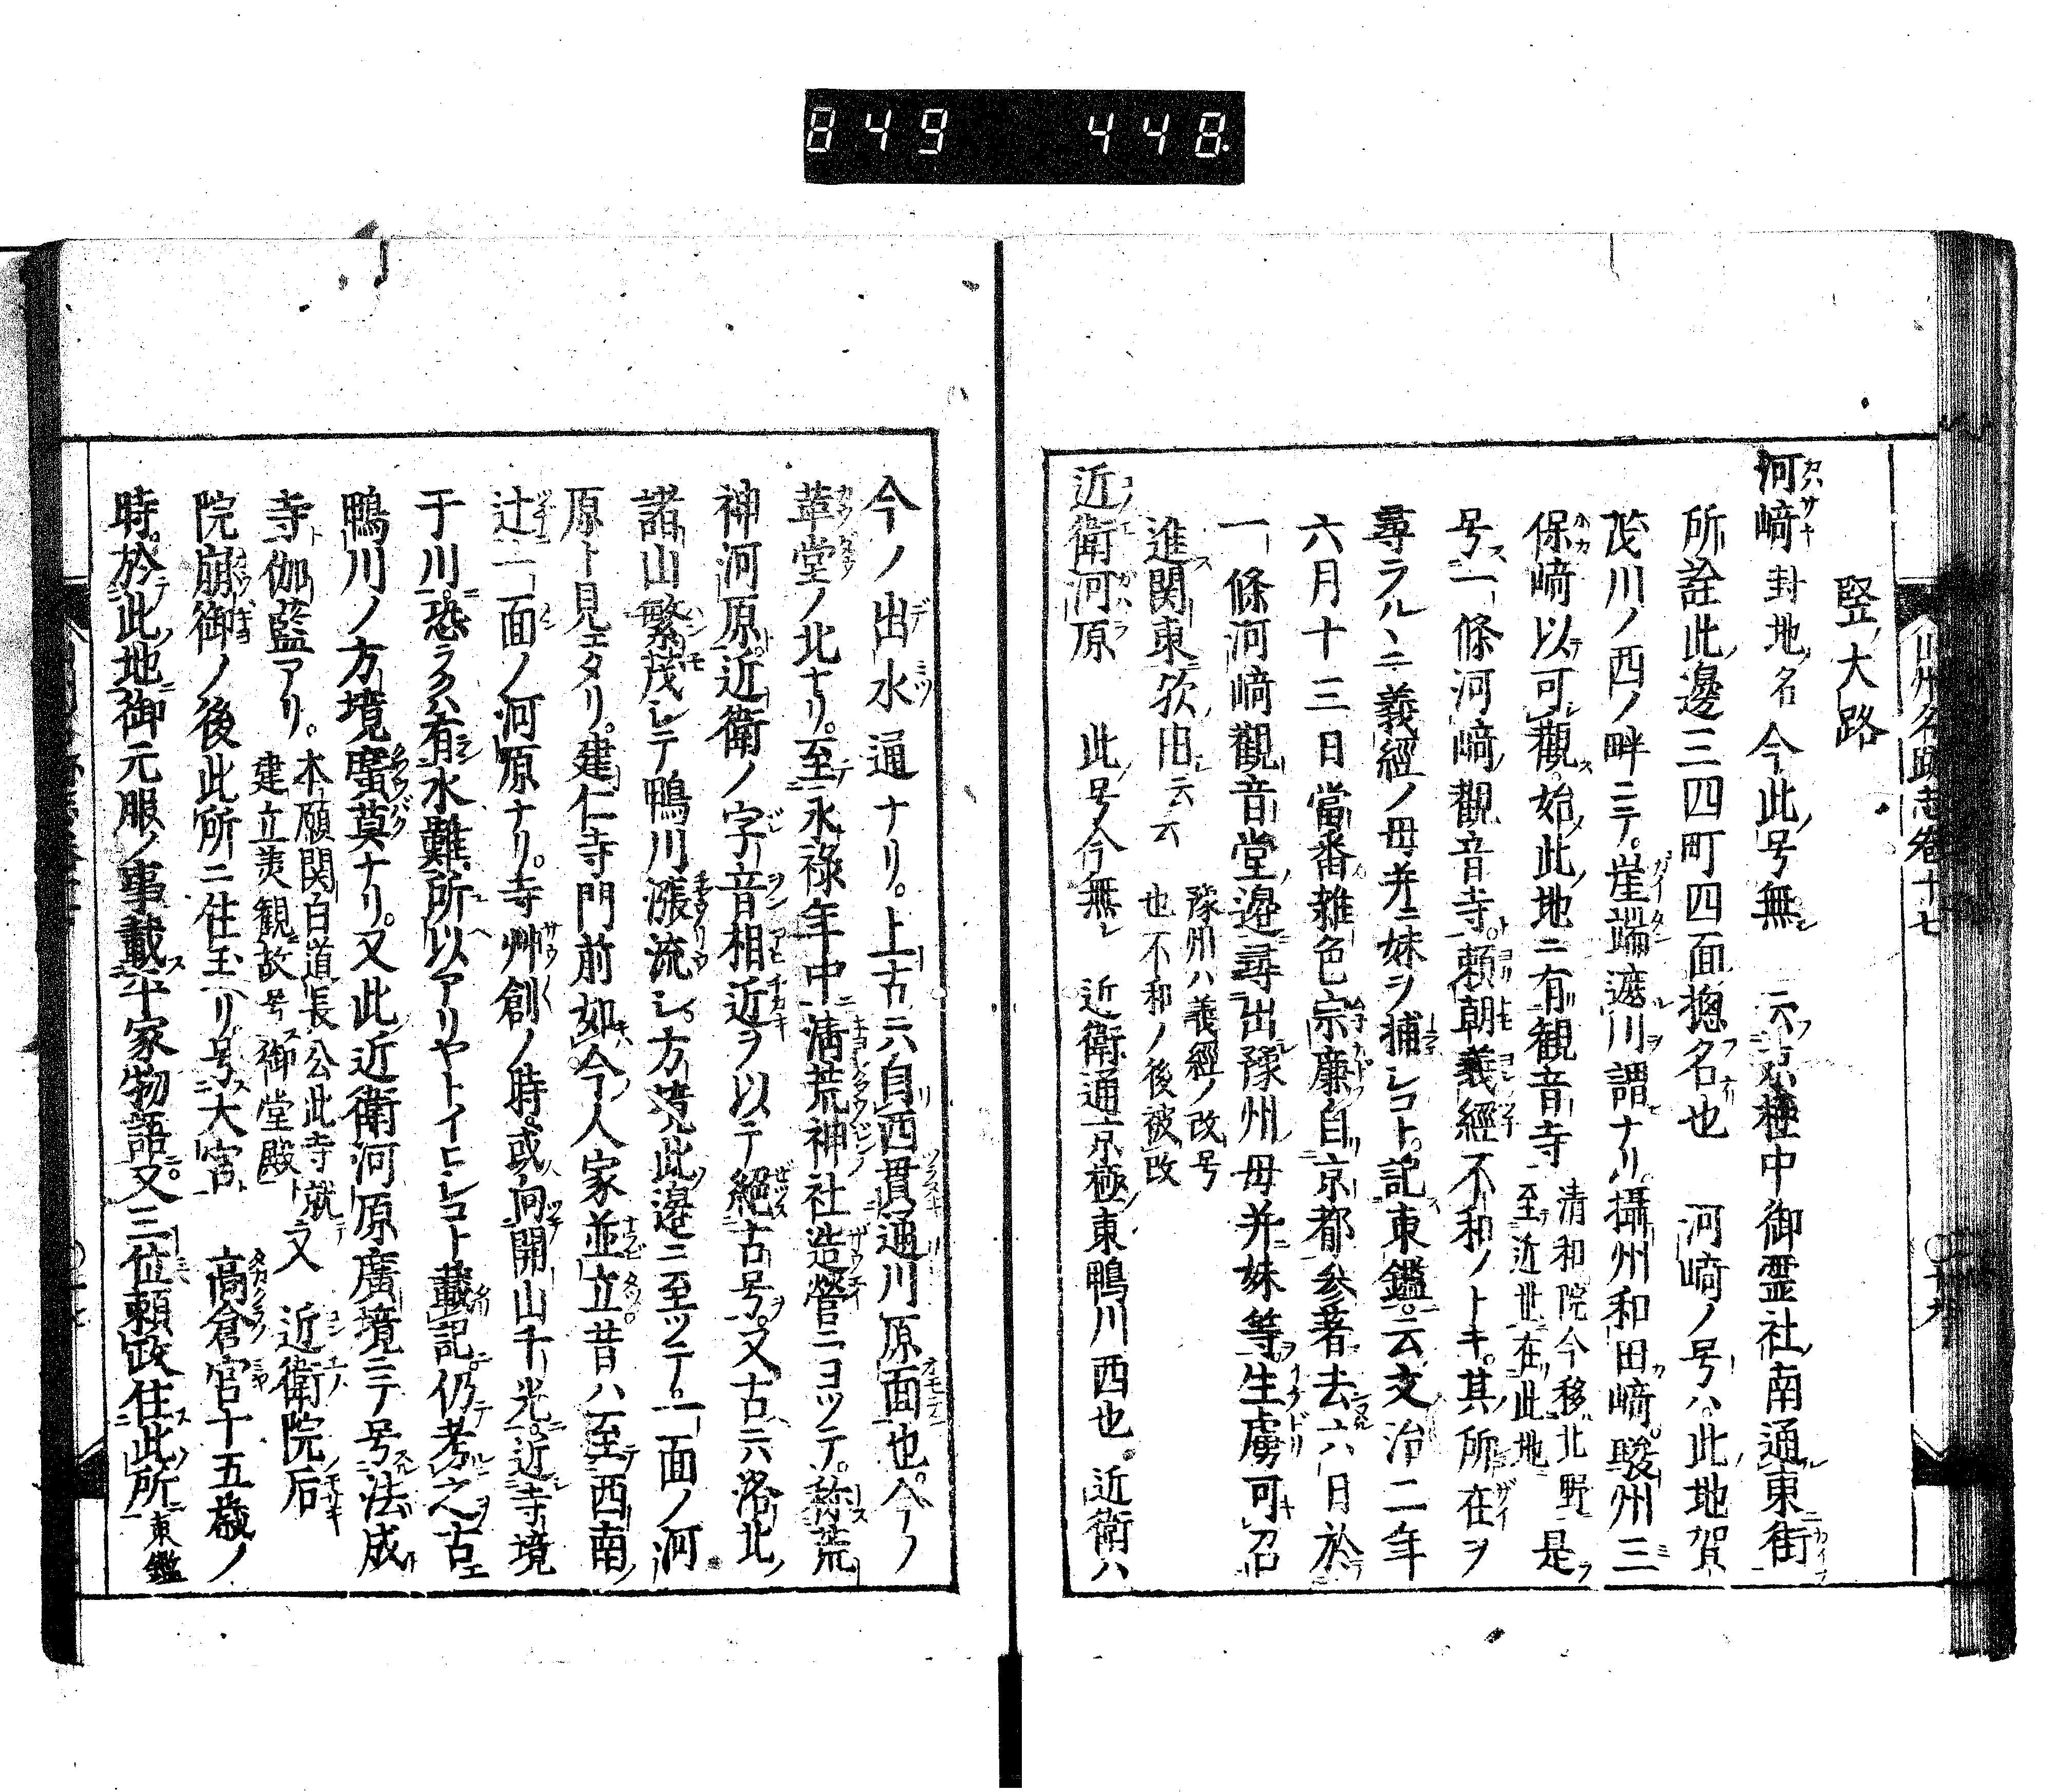 849 448.
竪大路
河﨑封地名 今此号無 云京極中御霊社南通東街
所詮此邊三四町四面揔名也 河﨑ノ号ハ此地賀
茂川ノ西ノ畔ニテ。崖端遮川謂ナリ。攝州和田﨑。駿州三
保﨑以可觀。始此地ニ有観音寺 清和院今移北野 至近世在此地 是
号一條河﨑觀音寺。頼朝義經不和ノトキ。其所在ヲ
尋ラルヽニ義經ノ母并ニ妹ヲ捕レコト。記東鑑。云文治二年
六月十三日當番雑色宗廉自京都參著去六日於
一條河﨑觀音堂邉尋出豫州母并妹等生虜可召
進関東欤旧云云 豫州ハ義經ノ改号 也不和ノ後被改
近衛河原 此号今無 近衛通京極東鴨川西也。近衛ハ
今ノ出水通ナリ。上古云自西貫通川原面也。今ノ
革堂ノ北ナリ。至永祿年中淸荒神社造營ニヨツテ。称荒
神河原。近衛ノ字音相近ヲ以テ絕古号。又古云洛北
諸山繁茂シテ鴨川漲流シ。方境此邉ニ至ツテ。一面ノ河
原ト見ヱタリ。建仁寺門前如今人家並立昔ハ至西南
辻一面ノ河原ナリ。寺艸創ノ時。或向開山千光。近寺境
于川。恐ラクハ有水難所以アリヤトイヒシコト載記。仍考之古
鴨川ノ方境廣莫ナリ。又此近衛河原廣境ニテ号法成
寺伽藍アリ。 本願関白道長公此寺就 建立美観故号御堂殿 又 近衛院后
院崩御ノ後此所ニ住玉リ号大宮 高倉宮十五歳ノ
時。於此地御元服ノ事載平家物語。又三位頼政住此所 東鑑